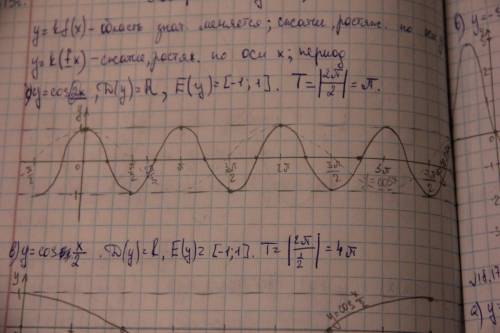 y=kf(x) - область знач. меняется; сжатие, растяж. по оси y
y=k(fx) - сжатие, растяж. по оси x; период
y=cos2x, D(y)=R, E(y)=[-1;1]. T=|2π/2|=π.
y
1
-π/2 0 π/2 π 3π/2 2π 3π
-1
в) y=cos x/2. D(y)=R, E(y)=[-1;1]. T=|2π/½|=4π
y
1
y=cos x/2
б) y=
а) y